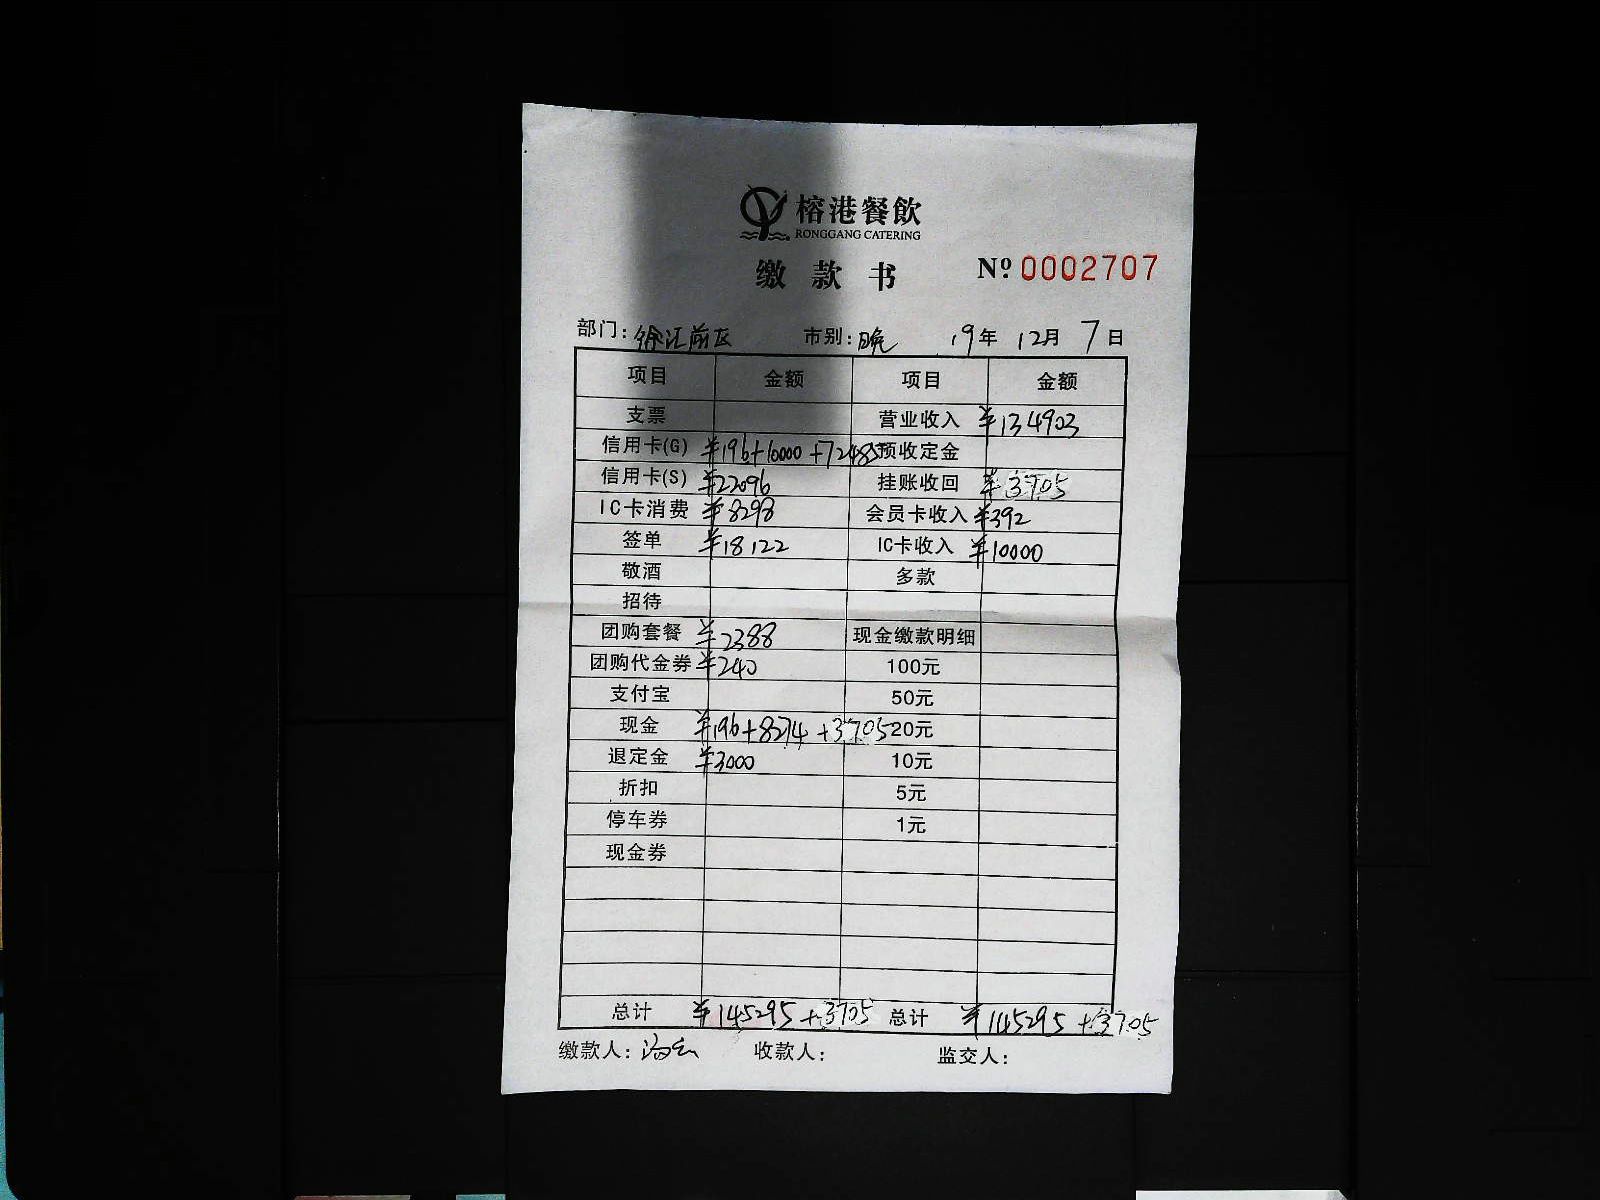 榕港餐飲
RONGGANG CATERING
缴款书 Nº 0002707
部门：徐汇前区 市别：晚 19年 12月 7日
项目 金额 项目 金额
支票 营业收入 ¥134903
信用卡(G) ¥196+10000+72485 预收定金
信用卡(S) ¥22096 挂账收回 ¥3705
IC卡消费 ¥8298 会员卡收入 ¥392
签单 ¥18122 IC卡收入 ¥10000
敬酒 多款
招待
团购套餐 ¥2388 现金缴款明细
团购代金券 ¥240 100元
支付宝 50元
现金 ¥196+8274+3705 20元
退定金 ¥3000 10元
折扣 5元
停车券 1元
现金券
总计 ¥145295+3705 总计 ¥145295+3705
缴款人： 收款人： 监交人：